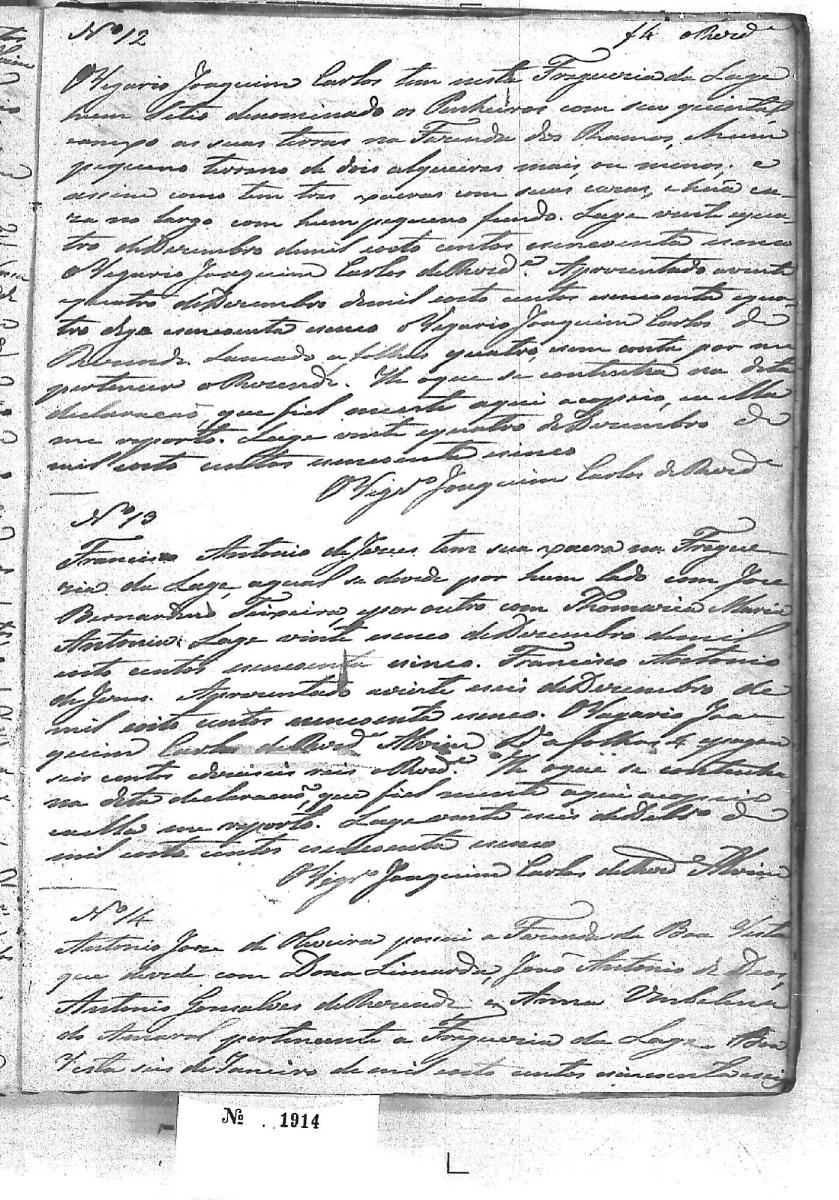 Nº 12 f 4 Rezde
O Vigario Joaquim Carlos tem nesta Fregueria da Lage
hum Sitio denominado os Pinheiros com seu quintal,
campo as suas terras na Fazenda dos Ramos, hum
pequeno terreno de dois alqueires mais, ou menos; e
assim como tem tres xacras com suas cazas, e huã ca-
za no largo com hum pequeno fundo. Lage vinte equa-
tro de Dezembro demil oito centos esincoenta esinco
O Vegario Joaquim Carlos de Rezde. Aprezentado avinte
equatro de Dezembro demil oito centos esincoenta equa-
tro digo esincoenta esinco O Vegario Joaquim Carlos de
Rezende. Lancado a folhas quatro, sem conta por me
pertencer o Rezende. He oque se continha na dita
declaracaõ, que fiel mente aqui acopiei, ea Ella
me reporto. Lage vinte equatro de Dezembro de
mil oito centos esincoenta esinco
O Vigro Joaquim Carlos de Rezde
Nº 13
Francisco Antonio de Jezus tem sua xacra na Fregue-
ria da Lage, aqual se devide por hum lado com Joze
Bernardino Teixeira, epor outro com Thomazia Maria
Antonia. Lage vinte esinco de Dezembro demil
oito centos esincoenta esinco. Francisco Antonio
de Jezus. Aprezentado avinte eseis de Dezembro de
mil oito centos esincoenta esinco. O Vegario Joa-
quim Carlos de Rezde Alvim Da folhas 4 epagou
seis centos edezeseis reis o Rezde. He oque se continha
na dita declaracaõ, que fiel mente aqui acopiei
ea Ella me reporto. Lage vinte seis de Dezbro de
mil oito centos esincoenta esinco
O Vigro Joaquim Carlos de Rezde Alvim
Nº 14
Antonio Joze de Oliveira possui a Fazenda da Boa Vista
que devide com Dona Limarda, Joaõ Antonio de Deos,
Antonio Gonsalves de Rezende, e Anna Umbelina
do Amaral pertencente a Fregueria da Lage. Boa
Vista seis de Janeiro de mil oito centos esincoenta eseis
Nº 1914